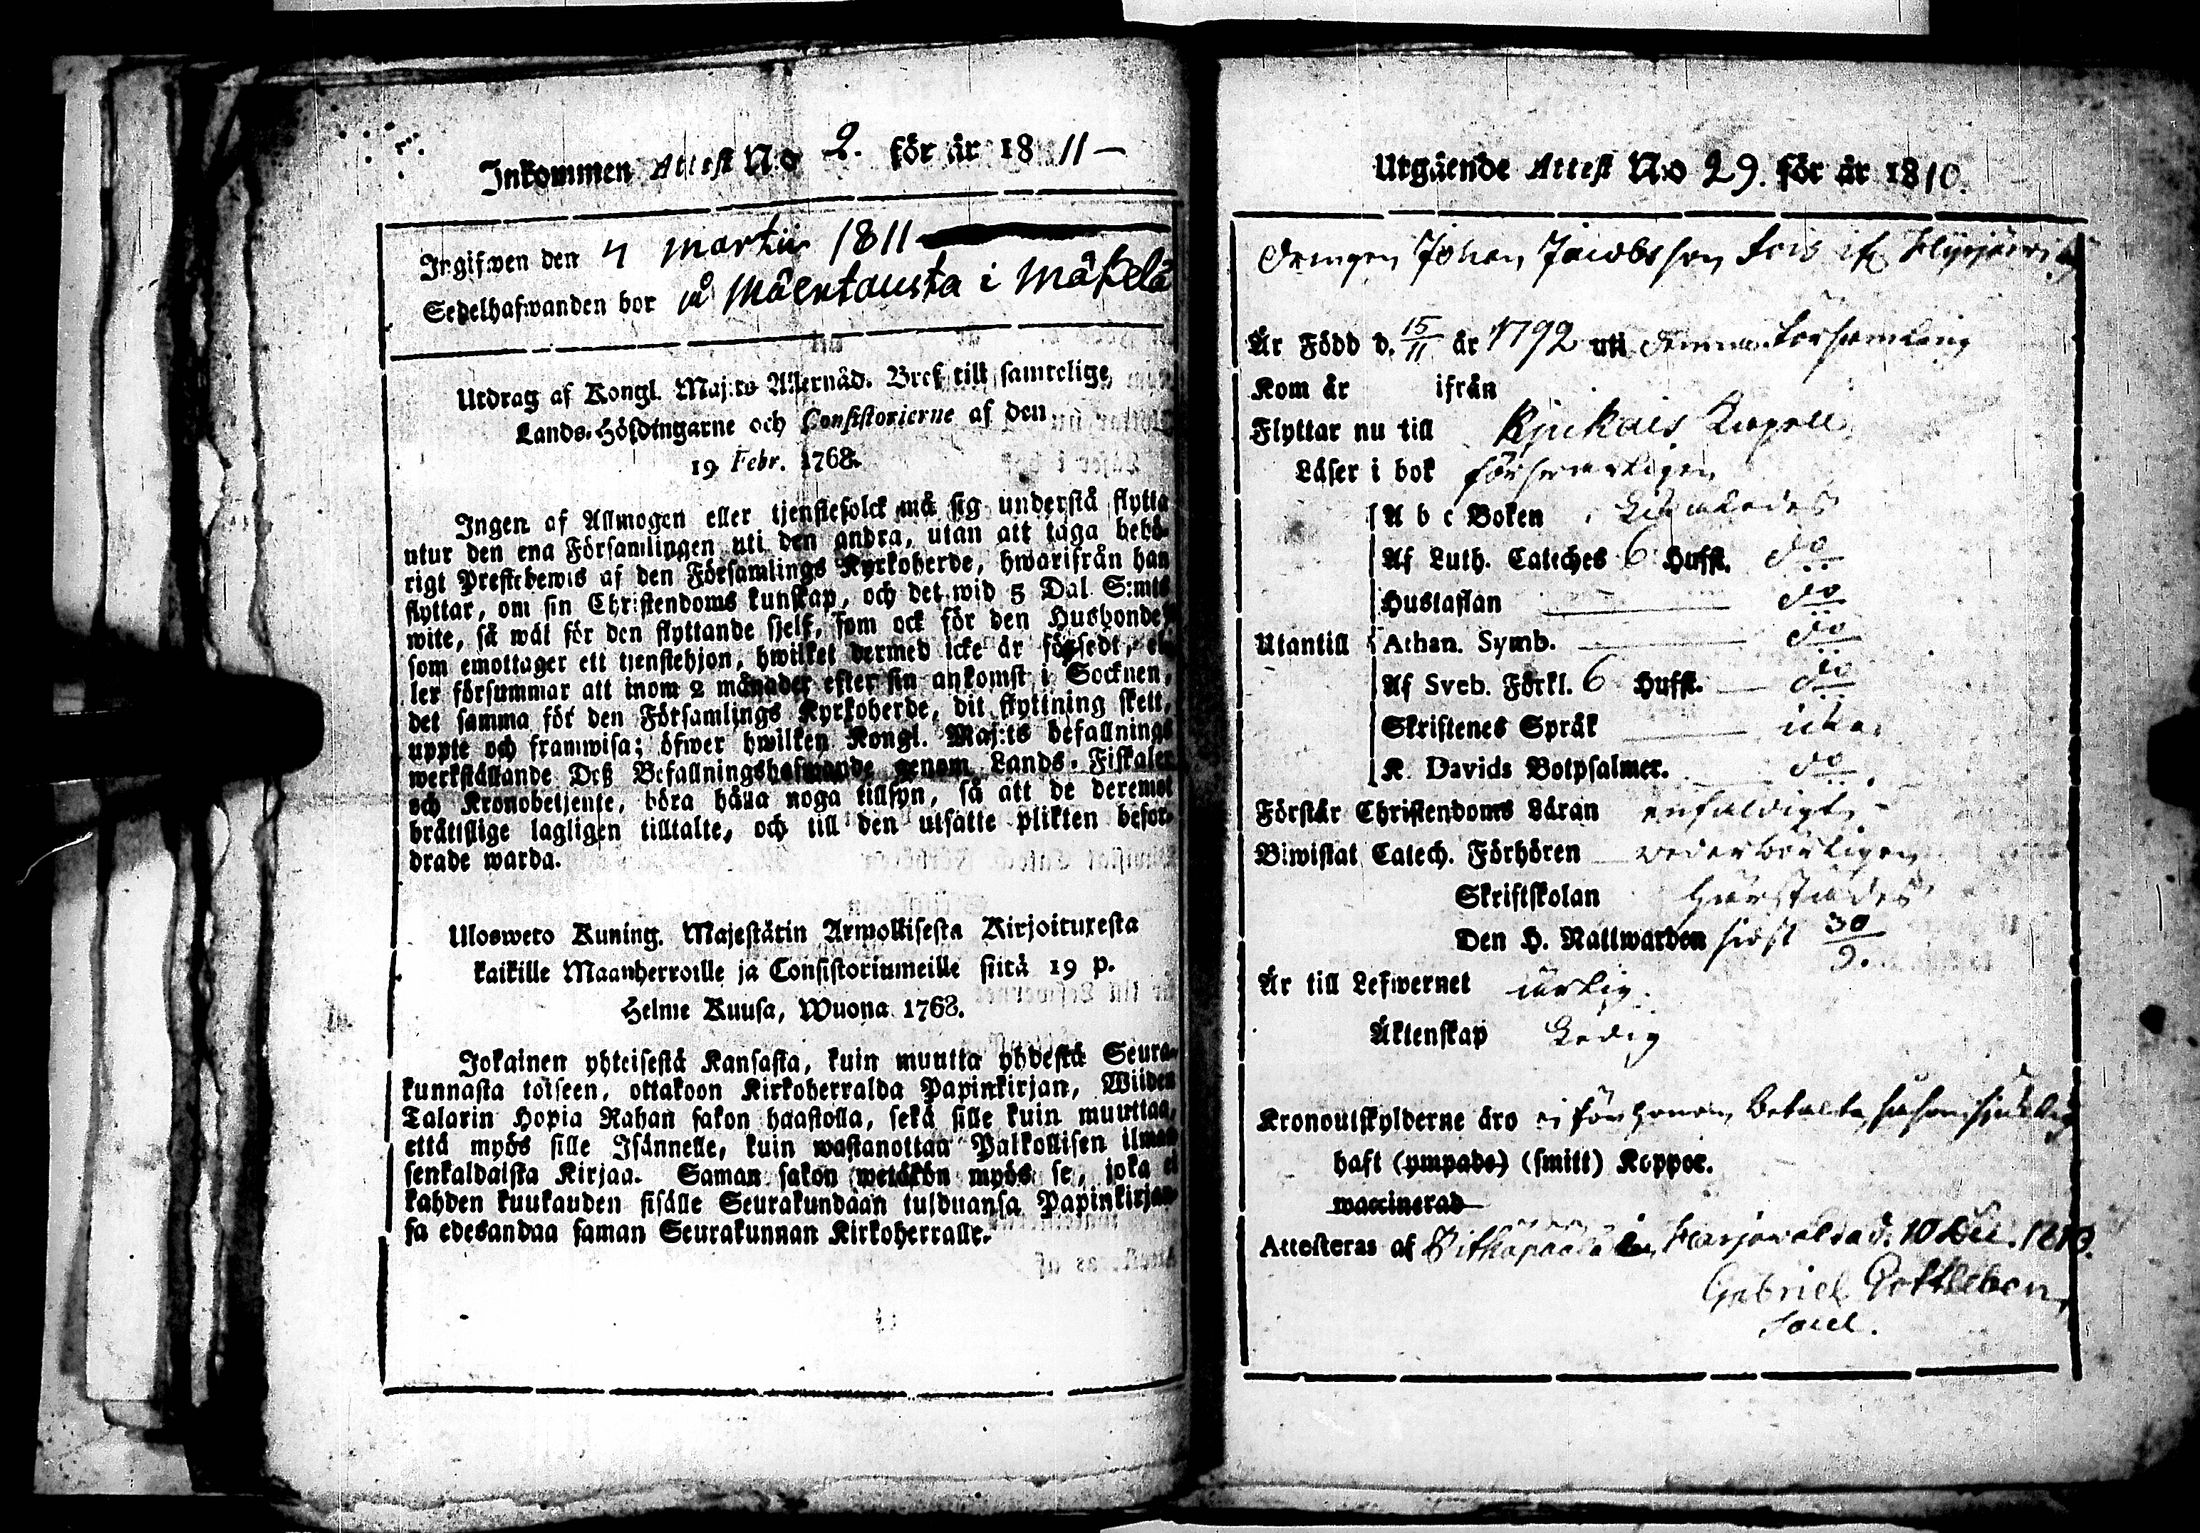 Inkommen Attest N:o 2. för år 1811 —
Ingifwen den 4 martii 1811
Sedelhafwanden bor på Mäentausta i Mäkelä
Utdrag af Kongl. Maj:ts Allernåd. Bref till samtelige
Lands-Höfdingarne och Consistorierne af den
19 Febr. 1768.
Ingen af Allmogen eller tjenstefolck må sig understå flytta
utur den ena Församlingen uti den andra, utan att taga behö-
rigt Prestebewis af den Församlings Kyrkoherde, hwarifrån han
flyttar, om sin Christendoms kunskap, och det wid 5 Dal S:mts
wite, så wäl för den flyttande sjelf, som ock för den Husbonde,
som emottager ett tjenstehjon, hwilket dermed icke är försedt, el-
ler försummar att inom 2 månader efter sin ankomst i Socknen,
det samma för den Församlings Kyrkoherde, dit flyttning skett,
uppte och framwisa; öfwer hwilken Kongl. Maj:ts befallnings
werkställande Deß Befallningshafwande genom Lands-Fiskaler
och Kronobetjente, böra hålla noga tillsyn, så att de deremot
bråttslige lagligen tilltalte, och till den utsatte plikten befor-
drade warda.
Uloswero Kuning. Majestätin Armollisesta Kirjoituxesta
kaikille Maanherroille ja Consistoriumeille siitä 19 p.
Helme Kuusa, Wuona 1768.
Jokainen yhteisestä Kansasta, kuin muutta yhdestä Seura-
kunnasta toiseen, ottakoon Kirkoherralda Papinkirjan, Wiiden
Talarin Hopia Rahan sakon haastolla, sekä sille kuin muuttaa,
että myös sille Isännelle, kuin wastanottaa Palkollisen ilman
senkaldaista Kirjaa. Saman sakon wetäkön myös se, joka ei
kahden kuukauden sisälle Seurakundaan tulduansa Papinkirjan-
sa edesandaa saman Seurakunnan Kirkoherralle.
Utgående Attest N:o 29. för år 1810.
Drengen Johan Jacobsson
Är Född d. 15/11 år 1792 uti denna Församling
Kom år ifrån
Flyttar nu till Kjukais Capell
Läser i bok försvarligen
A b c Boken Likaledes
Af Luth. Cateches 6 Hufst. do
Hustaflan do
Utantill Athan. Symb. do
Af Sveb. Förkl. 6 Hufst. do
Skriftenes Språk icke
K. Davids Botpsalmer. do
Förstår Christendoms Läran enfaldigt
Biwistat Catech. Förhören wederbörligen
Skriftskolan härstädes
Den H. Nattwarden sidst 30/9.
Är till Lefwernet ärlig.
Äktenskap Ledig
Kronoutskylderne äro ej för honom betalta,
haft (ympade) (smitt) Koppor.
waccinerad
Attesteras af Harjawalda d. 10 Dec. 1810.
Gabriel Gottleben,
Sacel.